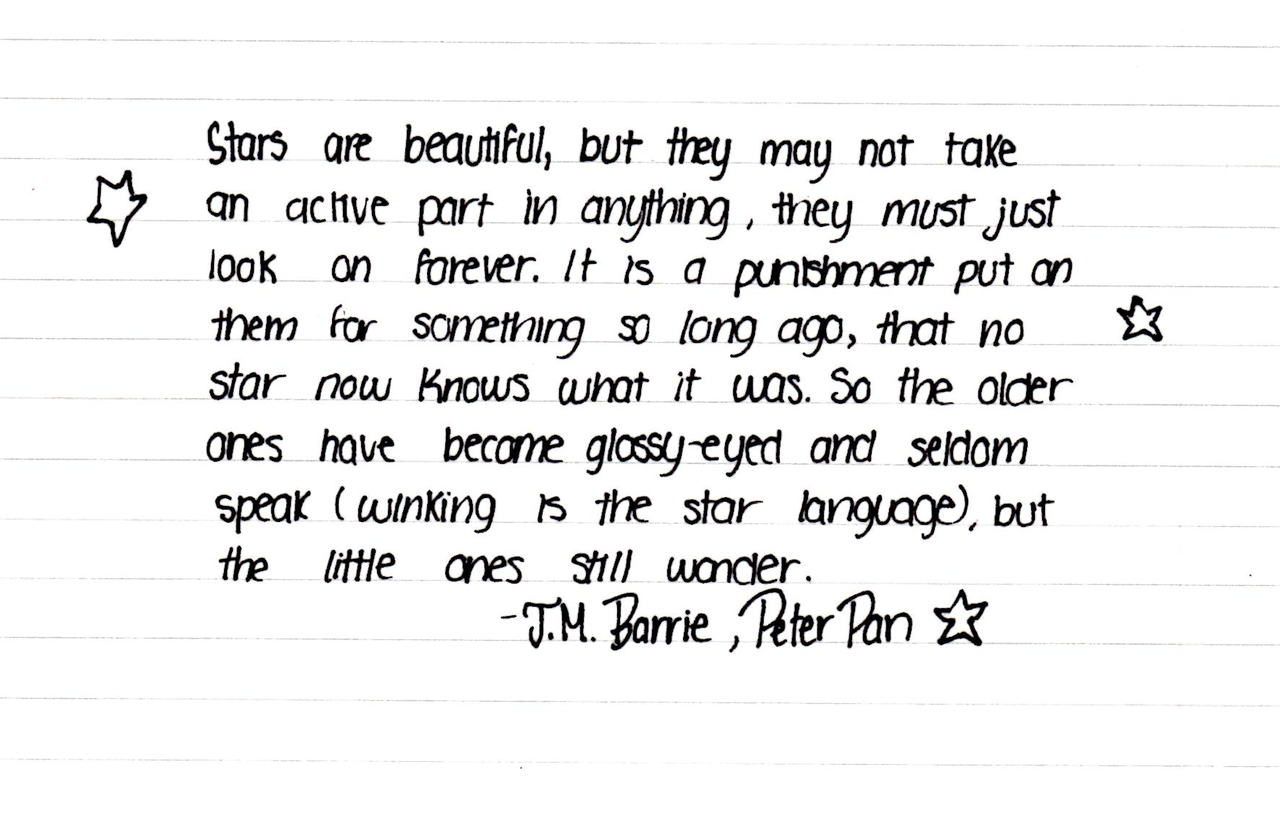 Stars are beautiful, but they may not take
an active part in anything, they must just
look on forever. It is a punishment put on
them for something so long ago, that no
star now knows what it was. So the older
ones have become glossy-eyed and seldom
speak (winking is the star language), but
the little ones still wonder.
-J.M. Barrie, Peter Pan